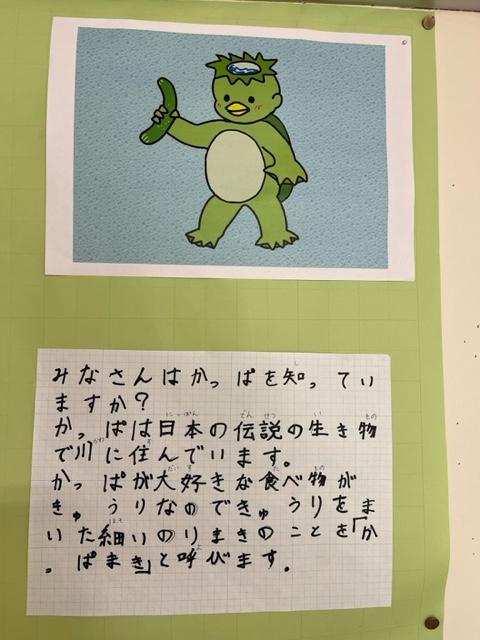 みなさんはかっぱを知ってい
ますか?
かっぱは日本の伝説の生き物
で川に住んでいます。
かっぱが大好きな食べ物が
きゅうりなのできゅうりをま
いた細いのりまきのことを「か
っぱまき」と呼びます。